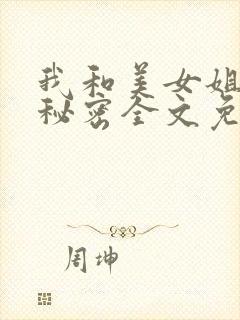 我和美女姐
秘密全文免
周坤